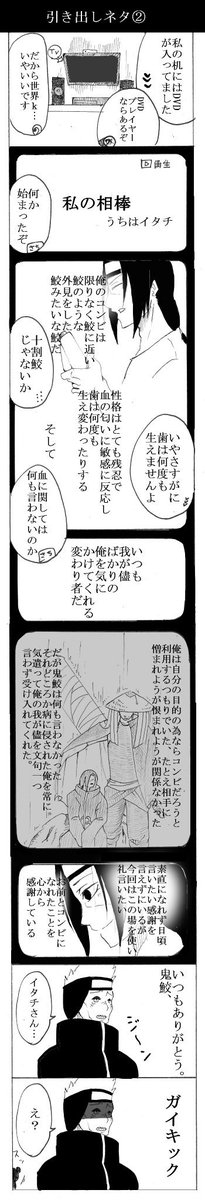 引き出しネタ②
私の机にはDVD
が入ってました
DVD
プレイヤー
ならあるぞ
だから世界
k…の
いやいいです
TV
再生
私の相棒
うちはイタチ
何か
始まったぞ
俺のコンビは
限りなく鮫に近い
鮫のような
外見をした
鮫みたいな鮫だ
十割鮫
じゃないか…
性格はとても残忍で
血の匂いに敏感に反応し
歯は何度も
生え変わったりする
いやさすがに
歯は何度も
生えませんよ
そして
血に関しては
何も言わないのか
いつも
我が儘
ばかりの
俺を気に
かけてくれる
変わり者だ
俺は自分の目的の為ならコンビだろうと
利用するつもりでいた、たとえ相手に
憎まれようが恨まれようが関係なかった
だが鬼鮫は何も言わなかった
それどころか病に侵された俺を常に
気遣って俺の我が儘を文句一つ
言わず受け入れてくれた。
素直になれず日頃
言いたい感謝を
言えずにいるが
今回はこの場を使い
礼を言いたい
お前とコンビに
なれたことを
心から
感謝している
いつもありがとう。
鬼鮫、
ジーン
イタチさん…
ガイキック
え?